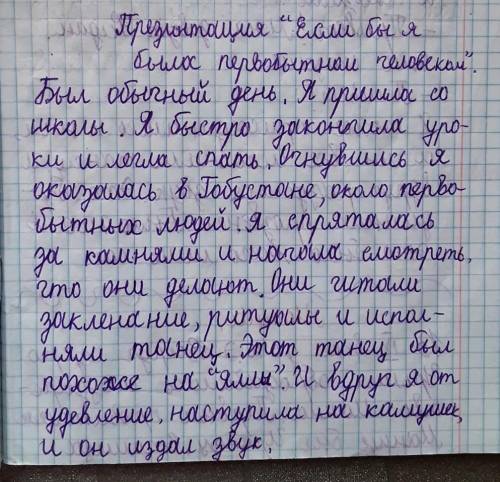 Презынтация "Если бы я
была первобытном человеком".
Был обычный день. Я пришла со
школы. Я быстро закончила уро-
ки и легла спать. Очнувшись я
оказалась в Гобустане, около перво-
бытных людей. Я спряталась
за камнями и начала смотреть,
что они делают. Они читали
закленание, ритуалы и испол-
няли танец. Этот танец был
похоже на "яллы". И вдруг я от
удевление, наступила на камушек
и он издал звук.